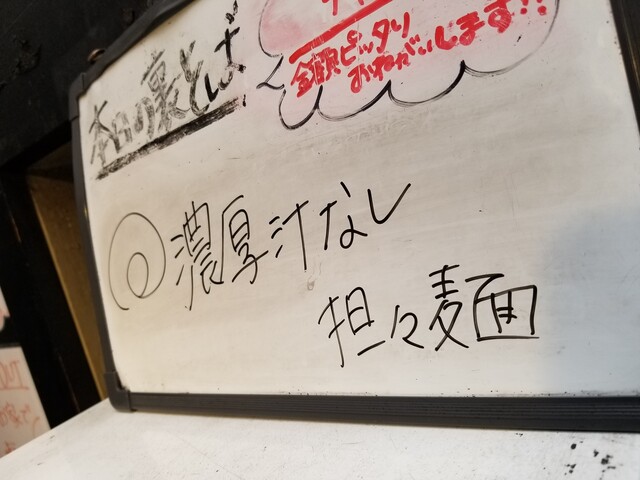 本日の裏そば
金額ピッタリ
おねがいします!!
◎濃厚汁なし
担々麺